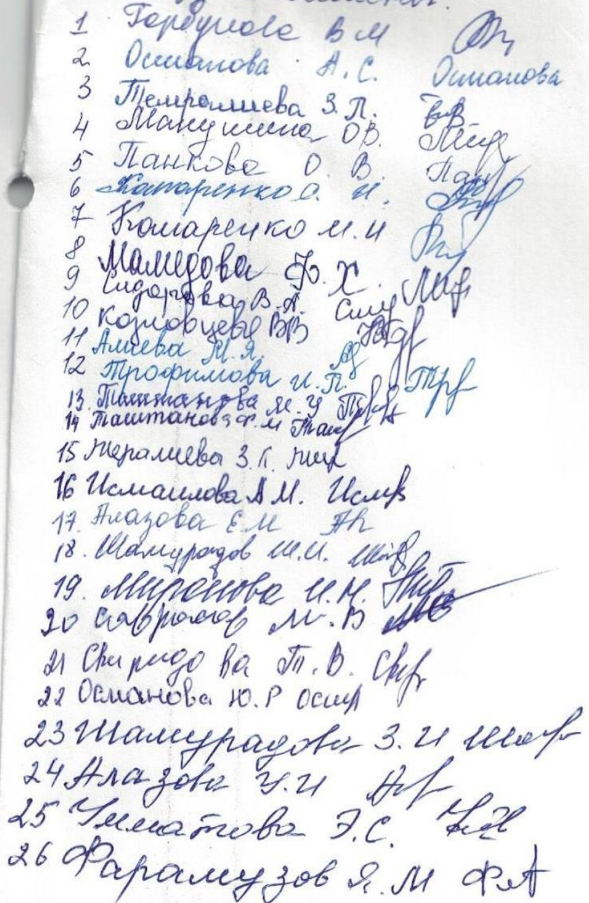 1 Горбунова В М
2 Османова А.С. Османова
3 Темралиева З.П.
4 Макушина О.В.
5 Панкова О. В. Пан
6 И.
7 Комаренко М.И
8 Мамедова Ф.Х.
9 Сидорова В.А. Сид
10 Козловцева ВВ
11 Алиева М.Я.
12 Трофимова И.П. Трф
13. М.У
14 Таштанова Ф.М Таш
15 Нералиева З.П. Нер
16 Исмаилова А М. Исмв
17. Алазова Е М Ал
18. Шамурадов Ш.И.
19. Миронова И.Н.
20 М.В
21 Свиридова Т.В. Свр
22 Османова Ю.Р осмр
23 Шамурадова З.И Шам
24 Алазова У.И
25 Умматова Э.С.
26 Фарамузов Я.М ФА